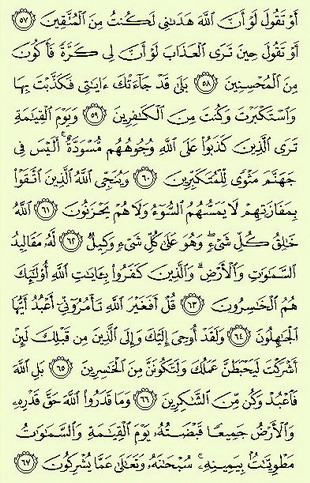 أَوْ تَقُولَ لَوْ أَنَّ ٱللَّهَ هَدَىٰنِى لَكُنتُ مِنَ ٱلْمُتَّقِينَ ٥٧
أَوْ تَقُولَ حِينَ تَرَى ٱلْعَذَابَ لَوْ أَنَّ لِى كَرَّةً فَأَكُونَ
مِنَ ٱلْمُحْسِنِينَ ٥٨ بَلَىٰ قَدْ جَآءَتْكَ ءَايَٰتِى فَكَذَّبْتَ بِهَا
وَٱسْتَكْبَرْتَ وَكُنتَ مِنَ ٱلْكَٰفِرِينَ ٥٩ وَيَوْمَ ٱلْقِيَٰمَةِ
تَرَى ٱلَّذِينَ كَذَبُوا۟ عَلَى ٱللَّهِ وُجُوهُهُم مُّسْوَدَّةٌ ۚ أَلَيْسَ فِى
جَهَنَّمَ مَثْوًى لِّلْمُتَكَبِّرِينَ ٦٠ وَيُنَجِّى ٱللَّهُ ٱلَّذِينَ ٱتَّقَوْا۟
بِمَفَازَتِهِمْ لَا يَمَسُّهُمُ ٱلسُّوٓءُ وَلَا هُمْ يَحْزَنُونَ ٦١ ٱللَّهُ
خَٰلِقُ كُلِّ شَىْءٍ ۖ وَهُوَ عَلَىٰ كُلِّ شَىْءٍ وَكِيلٌ ٦٢ لَّهُۥ مَقَالِيدُ
ٱلسَّمَٰوَٰتِ وَٱلْأَرْضِ ۗ وَٱلَّذِينَ كَفَرُوا۟ بِـَٔايَٰتِ ٱللَّهِ أُو۟لَٰٓئِكَ
هُمُ ٱلْخَٰسِرُونَ ٦٣ قُلْ أَفَغَيْرَ ٱللَّهِ تَأْمُرُوٓنِّىٓ أَعْبُدُ أَيُّهَا
ٱلْجَٰهِلُونَ ٦٤ وَلَقَدْ أُوحِىَ إِلَيْكَ وَإِلَى ٱلَّذِينَ مِن قَبْلِكَ لَئِنْ
أَشْرَكْتَ لَيَحْبَطَنَّ عَمَلُكَ وَلَتَكُونَنَّ مِنَ ٱلْخَٰسِرِينَ ٦٥ بَلِ ٱللَّهَ
فَٱعْبُدْ وَكُن مِّنَ ٱلشَّٰكِرِينَ ٦٦ وَمَا قَدَرُوا۟ ٱللَّهَ حَقَّ قَدْرِهِۦ
وَٱلْأَرْضُ جَمِيعًا قَبْضَتُهُۥ يَوْمَ ٱلْقِيَٰمَةِ وَٱلسَّمَٰوَٰتُ
مَطْوِيَّٰتٌۢ بِيَمِينِهِۦ ۚ سُبْحَٰنَهُۥ وَتَعَٰلَىٰ عَمَّا يُشْرِكُونَ ٦٧